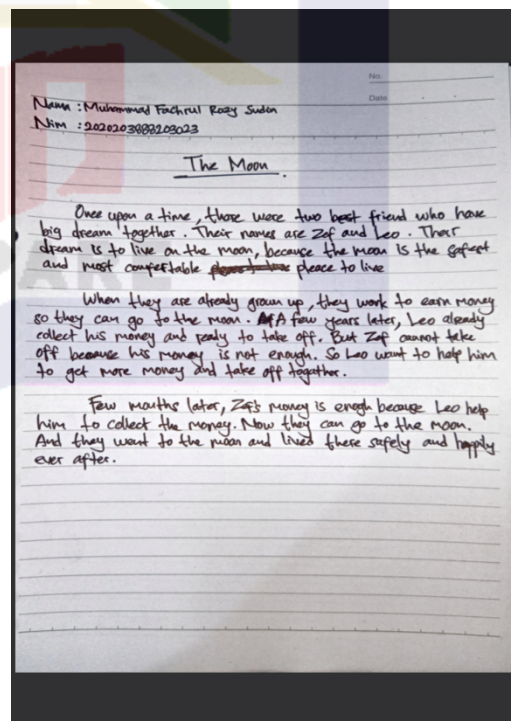 No.
Date
Nama : Muhammad Fachrul Rozy Sudin
Nim : 2020203888203023
The Moon
Once upon a time, there were two best friend who have
big dream together. Their names are Zef and Leo. Their
dream is to live on the moon, because the moon is the safest
and most comfertable pleace to live
When they are already grown up, they work to earn money
so they can go to the moon. A few years later, Leo already
collect his money and ready to take off. But Zef cannot take
off because his money is not enough. So Leo want to help him
to get more money and take off together.
Few mouths later, Zef's money is enogh because Leo help
him to collect the money. Now they can go to the moon.
And they want to the moon and lived there safely and happily
ever after.